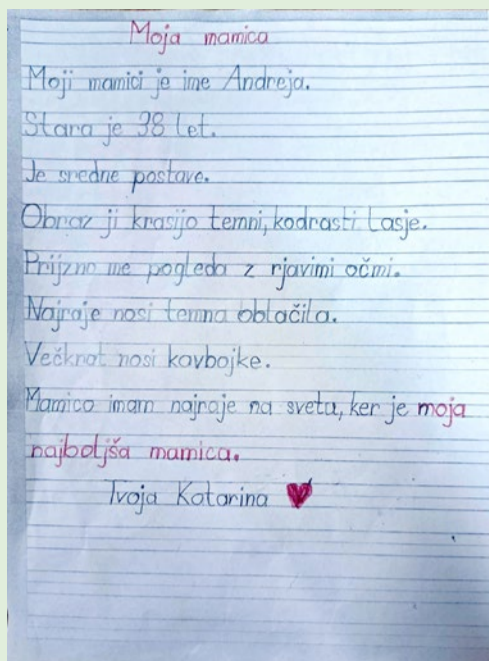 Moja mamica
Moji mamici je ime Andreja.
Stara je 38 let.
Je sredne postave.
Obraz ji krasijo temni, kodrasti lasje.
Prijzno me pogleda z rjavimi očmi.
Najraje nosi temna oblačila.
Večkrat nosi kavbojke.
Mamico imam najraje na svetu, ker je moja
najboljša mamica.
Tvoja Katarina